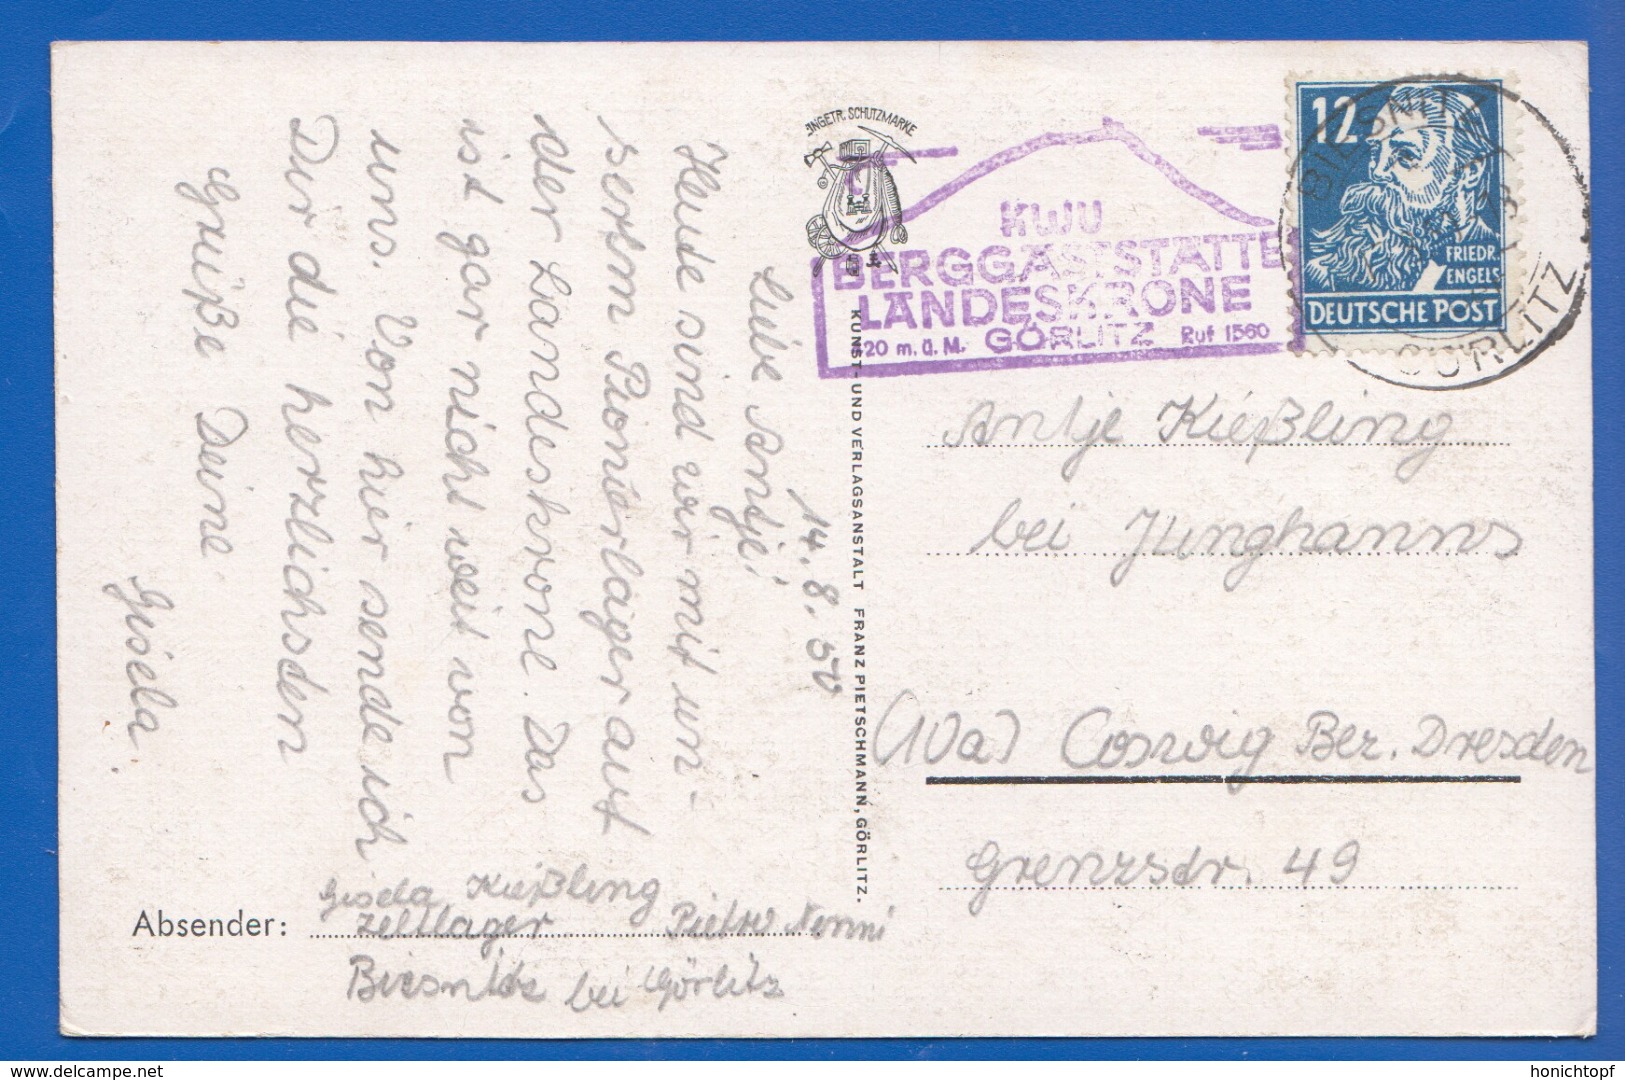 14. 8. 50
Liebe Antje!
Heute sind wir mit un-
serem Pionierlager auf
der Landeskrone. Das
ist gar nicht weit von
uns. Von hier sende ich
Dir die herzlichsten
Grüße Deine
Gisela.
Absender:
Gisela Kießling
Zeltlager Pietro Nenni
Biesnitz bei Görlitz
INGETR. SCHUTZMARKE
KUNST- UND VERLAGSANSTALT FRANZ PIETSCHMANN, GÖRLITZ.
KWU
BERGGASTSTÄTTE
LANDESKRONE
20 m. ü. M. GÖRLITZ Ruf 1560
12
FRIEDR.
ENGELS
DEUTSCHE POST
BIESNITZ
GÖRLITZ
Antje Kießling
bei Junghanns
(10a) Coswig Bez. Dresden
Grenzstr. 49
delcampe.net
honichtopf